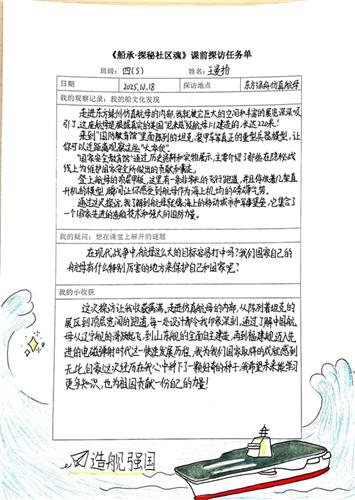 《船承·探秘社区魂》课前探访任务单
班级：四(5) 姓名：王曼扬
日期 2025.10.18 探访地点 东方绿舟仿真航母
我的观察记录：我的船文化发现
走进东方绿舟仿真航母的内部，我就被它巨大的空间和丰富的展区深深吸
引了，这座航母是根据真实的美国"尼米兹"级航母1:1建造的，来达220米！
来到"国防教育馆"里面陈列的坦克、装甲车等真正的重型兵器模型，让
你可以近距离观察这些"大家伙"。
"国家安全教育馆"通过历史资料和实物展示，主要介绍了那些在隐秘战
线上为维护国家安全所做出的贡献和奉献。
登上航母的顶层甲板，这里有一条非常长的飞行跑道，并且停放着几架直
升机的模型，瞬间让你感受到航母作为海上机场的磅礴气势。
通过这次探访，我了解到航母就像海上的移动城市和军事堡垒，它蕴含了
一个国家先进的造船技术和强大的国防力量。
我的疑问：想在课堂上解开的谜题
在现代战争中，航母这么大的目标容易打中吗？我们国家自己的
航母有什么特别厉害的地方来保护自己和国家呢？
我的小收获
这次探访让我收获满满。走进仿真航母的内部，从陈列着坦克的
展区到顶层宽阔的跑道，每一处设计都令我印象深刻。通过了解中国航
母从辽宁舰的滑跃起飞，到山东舰的全面自主建造，再到福建舰迈入先
进的电磁弹射时代这一快速发展历程，我为我们国家取得的成就感到
无比自豪！这次经历在我心中种下了一颗好奇的种子，我希望未来能学习
更多知识，也为祖国贡献一份自己的力量！
造舰强国